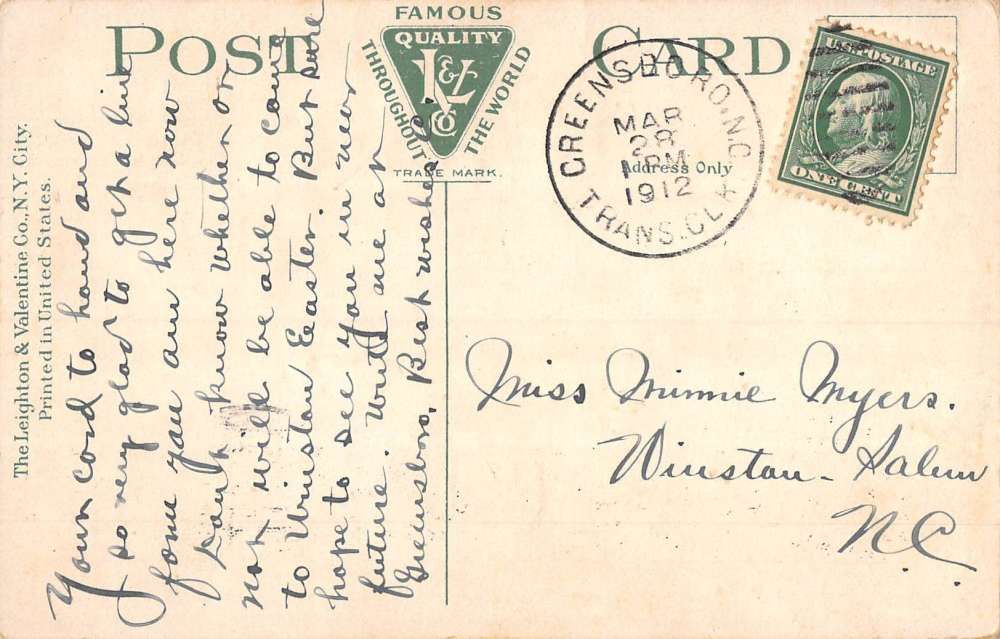 POST CARD
FAMOUS
QUALITY
THROUGHOUT
THE WORLD
L&V
Co
TRADE MARK.
Address Only
GREENSBORO, N.C.
MAR
28
1 PM
1912
TRANS. CLK
U.S. POSTAGE
ONE CENT
The Leighton & Valentine Co., N.Y. City.
Printed in United States.
Your card to hand and
so very glad to get a line
from you am here now
Don't know whether or
not will be able to come
to Winston Easter. But sure
hope to see you in near
future. Write me at
Greensboro, Best wishes
Miss Minnie Myers.
Winston-Salem
N.C.